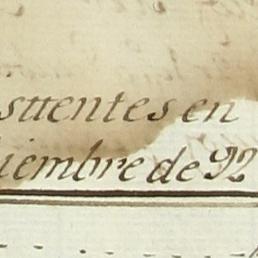 sttentes en
iembre de 92